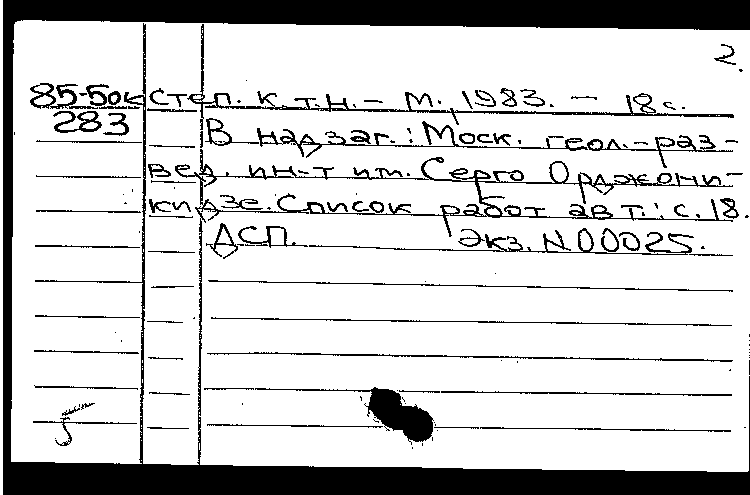 2.
85-5ок степ. к.т.н. - М., 1983. - 18 с.
283 В надзаг.: Моск. геол.-раз-
вед. ин-т им. Серго Орджони-
кидзе. Список работ авт.: с. 18.
ДСП. Экз. N 00025.
5